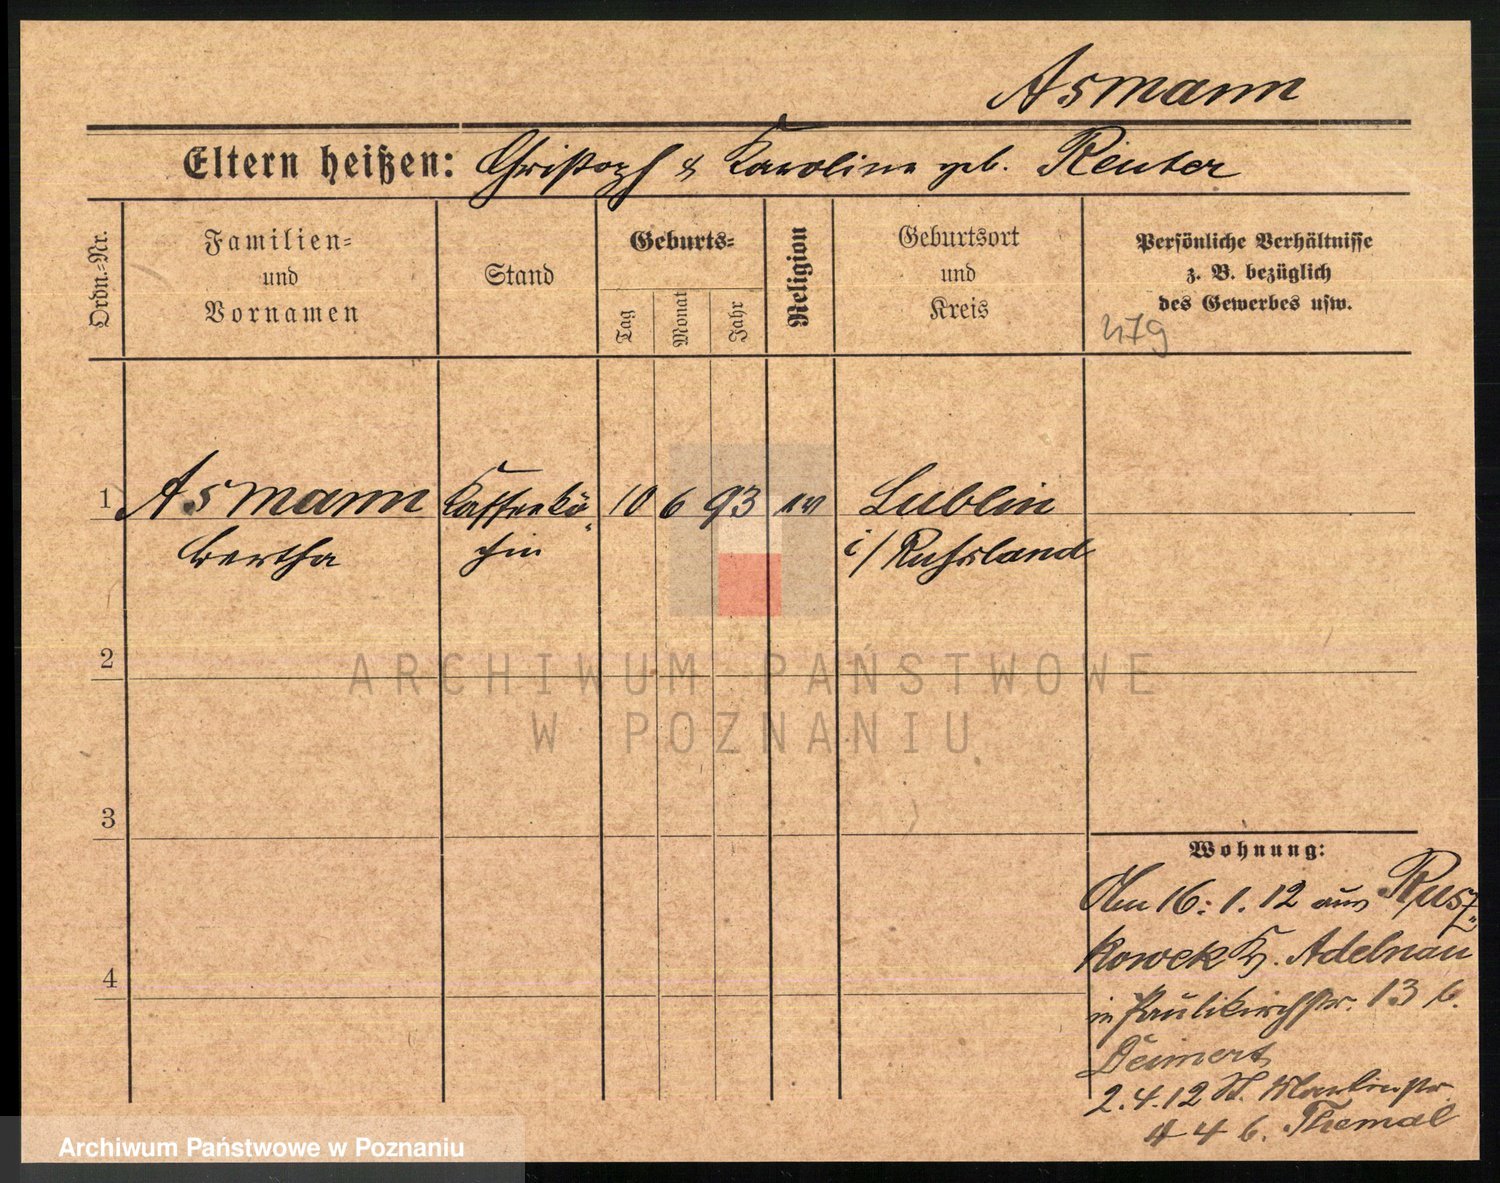 Asmann
Eltern heißen: Christoph & Karoline geb. Reuter
Ordn.-Nr.
Familien-
und
Vornamen
Stand
Geburts-
Tag
Monat
Jahr
Religion
Geburtsort
und
Kreis
Persönliche Verhältnisse
z. B. bezüglich
des Gewerbes usw.
479
1 Asmann Kaffeekö- 10 6 93 ev Lublin
Bertha chin i/Rußland
2
ARCHIWUM PAŃSTWOWE
W POZNANIU
3
Wohnung:
Am 16. 1. 12 aus Rusz-
kowek Kr. Adelnau
4
in Paulikirchstr. 13 b.
Deimert
2.4.12 St. Martinstr.
44 b. Themal
Archiwum Państwowe w Poznaniu